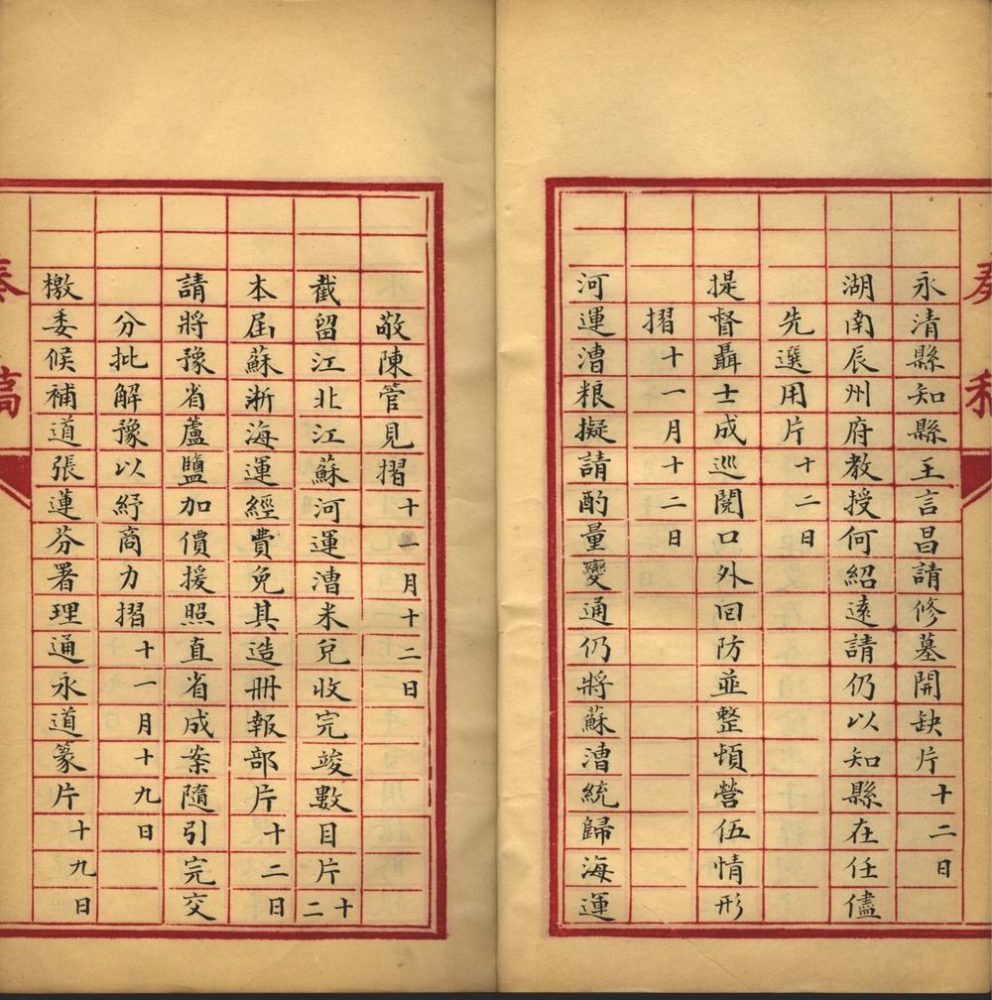 奏稿
永清縣知縣王言昌請修墓開缺片十二日
湖南辰州府教授何紹遠請仍以知縣在任儘
先選用片十二日
提督聶士成巡閱口外回防並整頓營伍情形
摺十一月十二日
河運漕粮擬請酌量變通仍將蘇漕統歸海運
敬陳管見摺十一月十二日
截留江北江蘇河運漕米兌收完竣數目片十二
本屆蘇浙海運經費免其造冊報部片十二日
請將豫省蘆鹽加價援照直省成案隨引完交
分批解豫以紓商力摺十一月十九日
檄委候補道張蓮芬署理通永道篆片十九日
奏稿